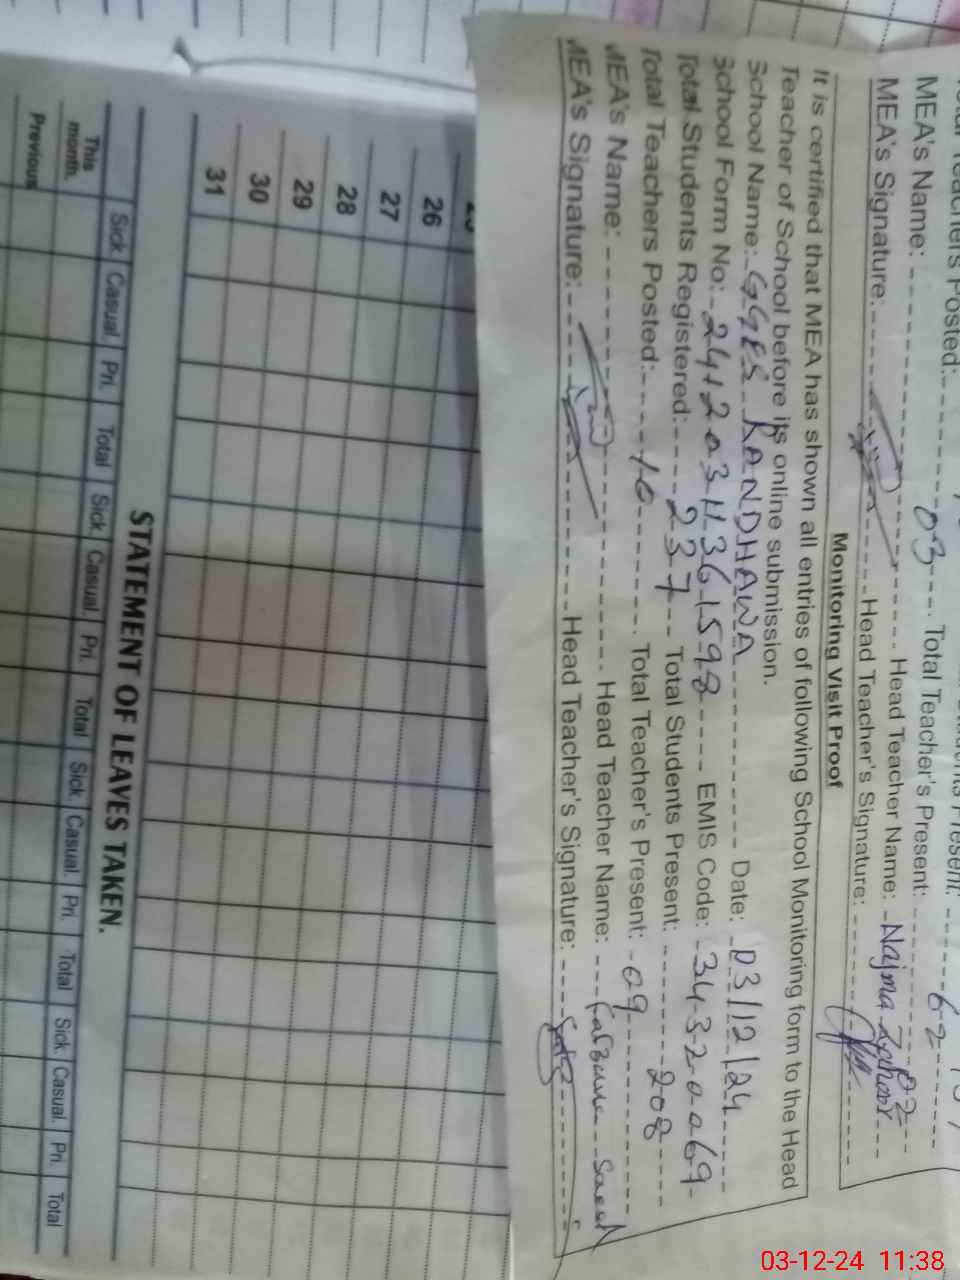 Teachers Posted: 03 Total Teacher's Present: 02
MEA's Name: Head Teacher Name: Najma Zahoor
MEA's Signature: Head Teacher's Signature:
Monitoring Visit Proof
It is certified that MEA has shown all entries of following School Monitoring form to the Head
Teacher of School before its online submission.
School Name: GGES RANDHAWA Date: 03/12/24
School Form No: EMIS Code: 34320069
Total Students Registered: 237 Total Students Present: 208
Total Teachers Posted: 10 Total Teacher's Present: 09
MEA's Name: Head Teacher Name: Saeed
MEA's Signature: Head Teacher's Signature:
26
27
28
29
30
31
STATEMENT OF LEAVES TAKEN.
Sick. Casual. Pri. Total Sick. Casual. Pri. Total Sick. Casual. Pri. Total Sick. Casual. Pri. Total
This month.
Previous
03-12-24 11:38